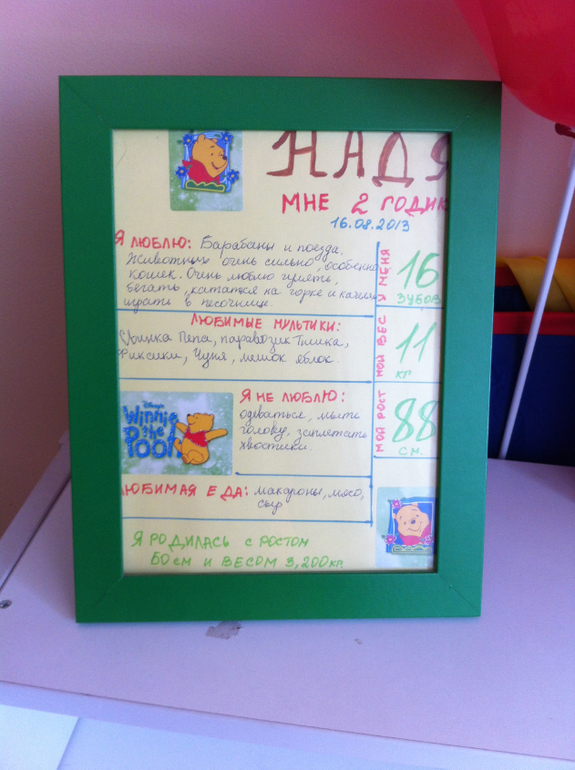 НАДЯ
МНЕ 2 ГОДИК
16.08.2013
Я ЛЮБЛЮ: Барабаны и поезда.
Животных очень сильно, особенно
кошек. Очень люблю гулять,
бегать, кататся на горке и качели
играть в песочнице.
У МЕНЯ
16
ЗУБОВ
ЛЮБИМЫЕ МУЛЬТИКИ:
Свинка Пепа, паравозик Тишка,
Фиксики, Цуня, мешок яблок.
МОЙ ВЕС
11
КГ
Disney's
Winnie
the
Pooh
Я НЕ ЛЮБЛЮ:
одеваться, мыть
голову, заплетать
хвостики.
МОЙ РОСТ
88
СМ.
ЛЮБИМАЯ ЕДА: макароны, мясо,
сыр
Я РОДИЛАСЬ С РОСТОМ
50 СМ И ВЕСОМ 3,200 КГ.